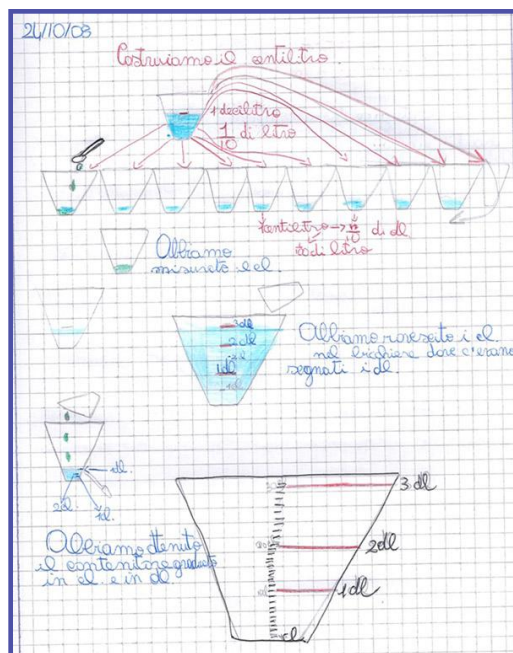 24/10/08
Costruiamo il centilitro.
1 decilitro
1/10 di litro
1 centilitro → 1/10 di dl
di litro
Abbiamo
misurato il cl.
3 dl
2 dl
1 dl
Abbiamo rovesciato i cl.
nel bicchiere dove c'erano
segnati i dl.
1cl.
2cl.
Abbiamo ottenuto
il contenitore graduato
in cl. e in dl.
3 dl
2 dl
1 dl
cl